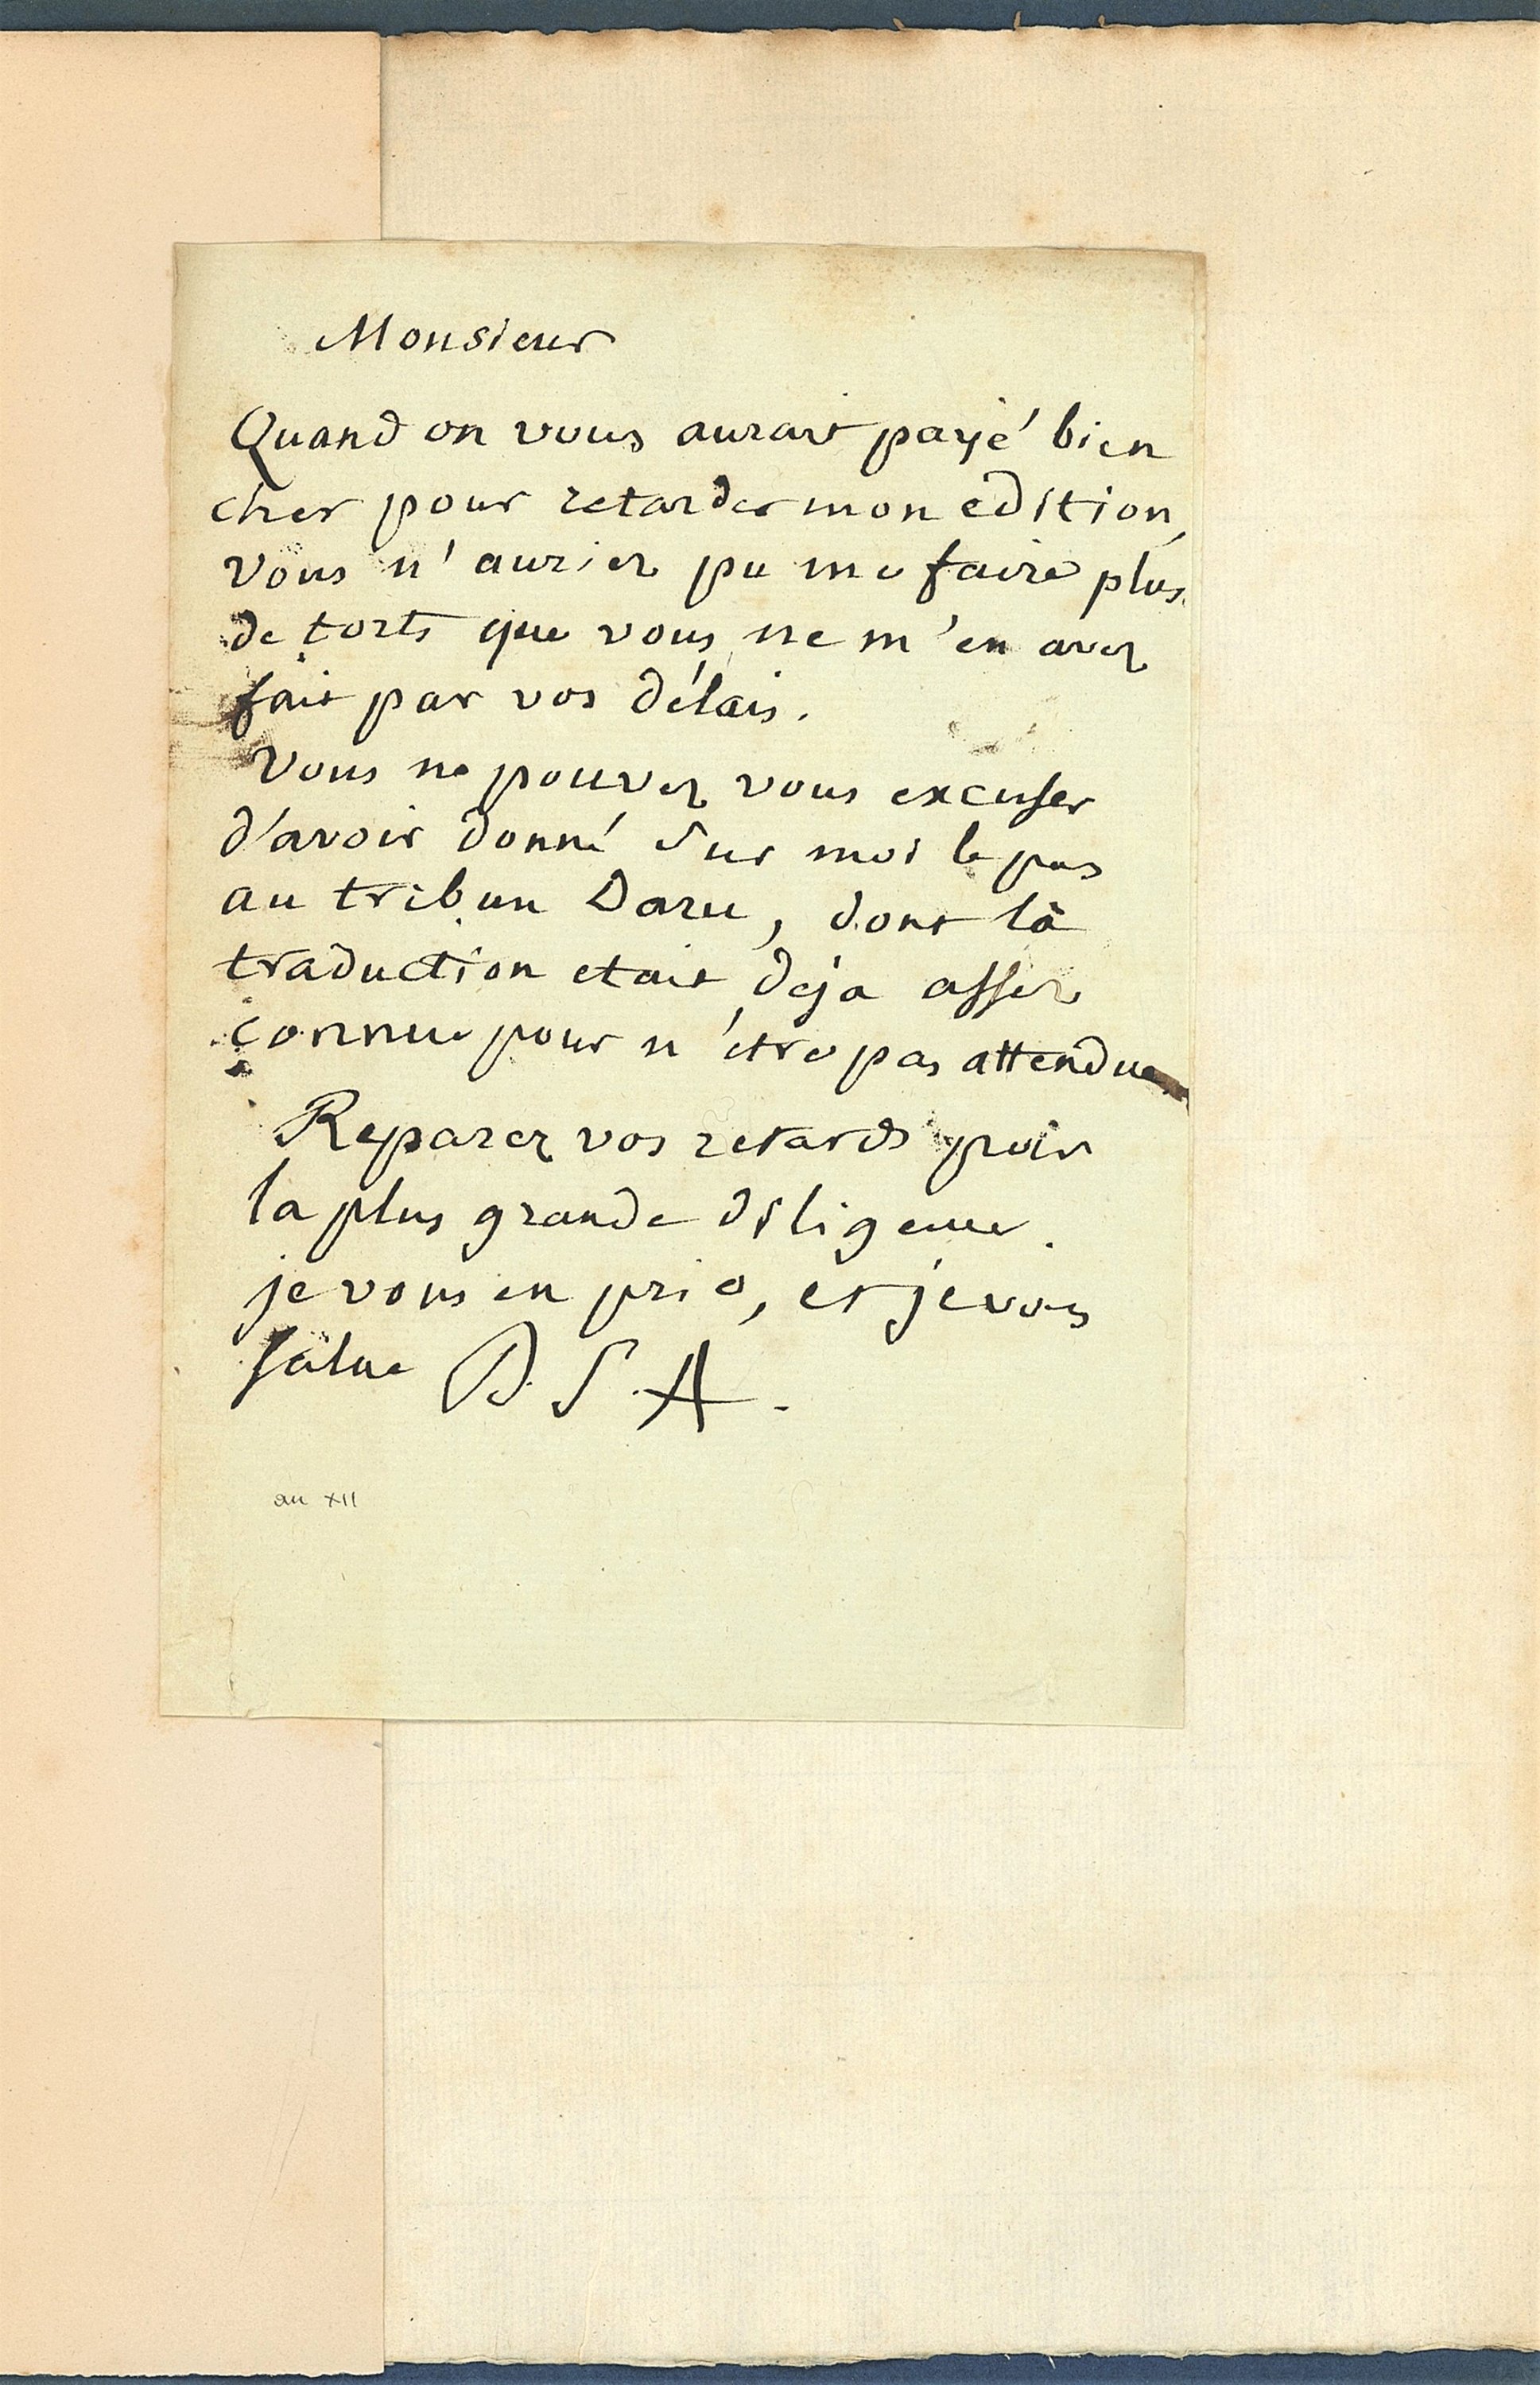 Monsieur
Quand on vous aurait payé bien
cher pour retarder mon edition,
vous n'auriez pu me faire plus
de torts que vous ne m'en avez
fait par vos délais.
Vous ne pouvez vous excuser
d'avoir donné sur moi le pas
au tribun Daru, dont la
traduction etait deja assez
connue pour n'être pas attendue
Reparez vos retards par
la plus grande diligence.
je vous en prie, et je vous
salue D. S. A.
an XII